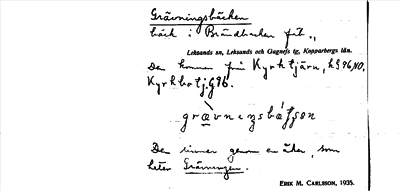 Grävningsbäcken
bäck i Brändbacken fäb.,
Leksands sn, Leksands och Gagnefs tg, Kopparbergs län.
Den kommer från Kyrktjärn, h.G 96 NO,
Kyrkbotj. G 96.
Den rinner genom en åker, som
heter Grävningen.
ERIK M. CARLSSON, 1935.